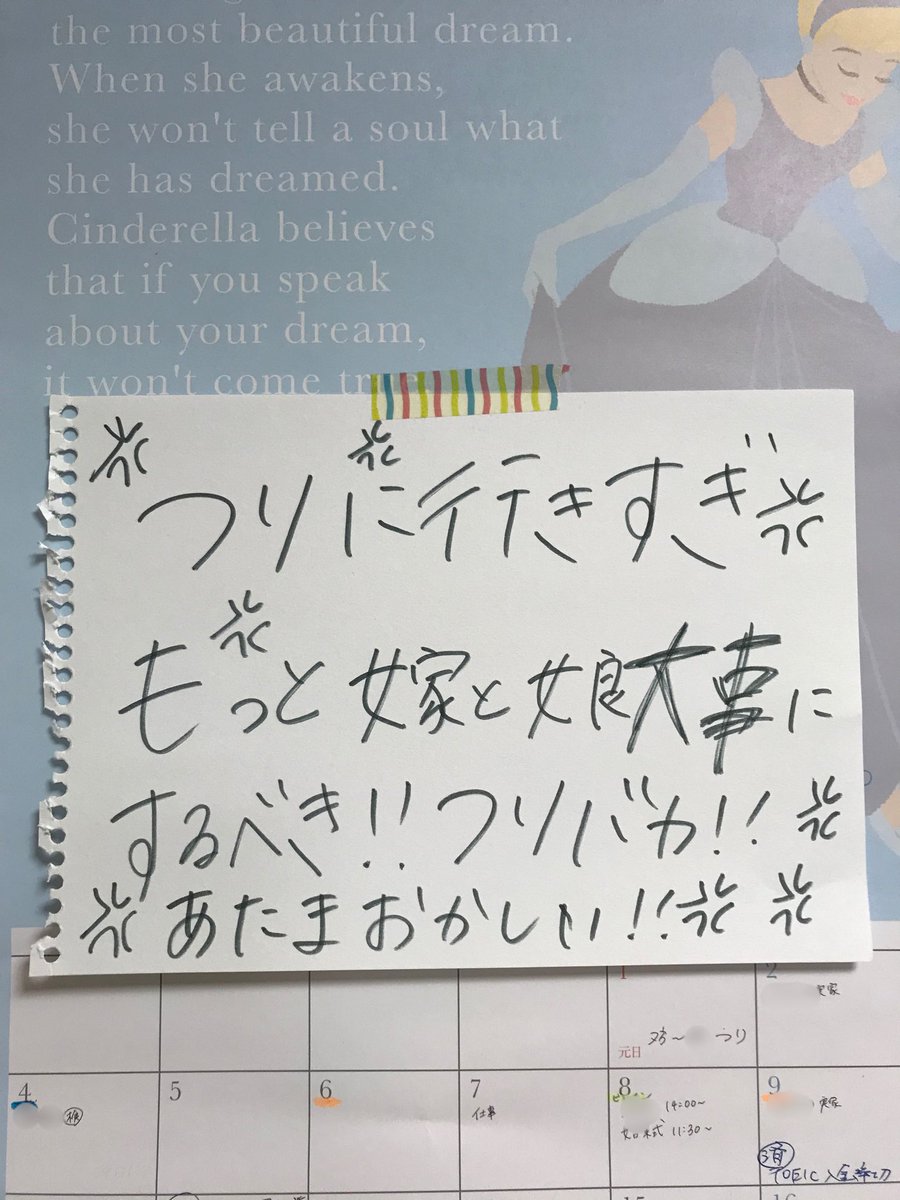 the most beautiful dream.
When she awakens,
she won't tell a soul what
she has dreamed.
Cinderella believes
that if you speak
about your dream,
it won't come true
つりに行きすぎ
もっと嫁と娘大事に
するべき!!つりバカ!!
あたまおかしい!!
1
2
元日
つり
実家
4
5
6
7
仕事
8
14:00~
11:30~
9
実家
済
TOEIC入金締切
15
16